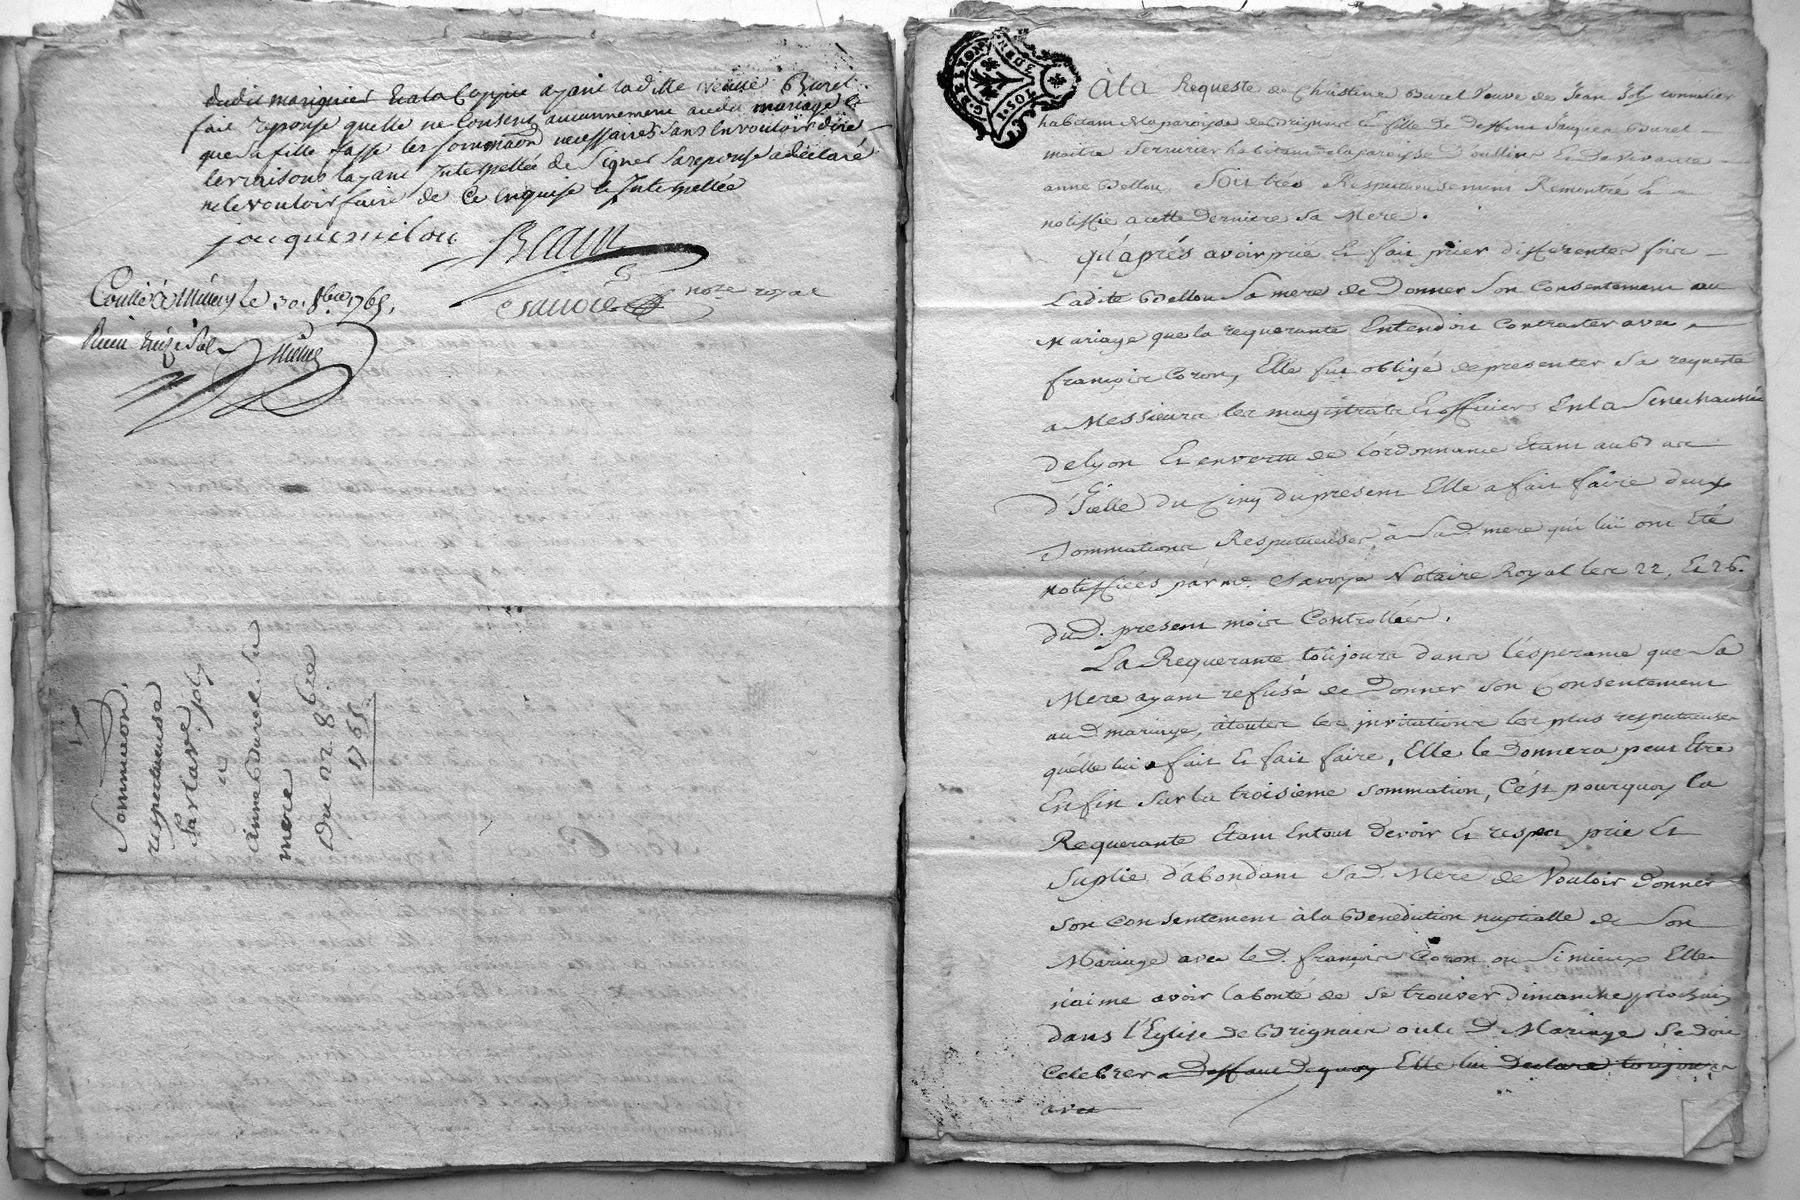 dudit marignier Et a la Coppie ayant laditte veuve Burel
fait reponse quelle ne Consent aucunnement audit mariage Et
que sa fille fasse les sommaon necessaires sans En vouloir dire
les raisons layant Interpellée de Signer sa reponse a déclaré
ne le vouloir faire de Ce Enquise Et Interpellée
notre royal
Le 30 8bre 1765.
Sommation
respectueuse
par la ve. joly
a
anne Burel sa
mere
Du 22. 8bre
1765.
GEN DE LYON
à la Requeste de Christine Burel Veuve de Jean Joly
habitant de la paroisse de Brignais Et fille de deffunt Jacques Burel
maitre Serrurier habitant de la paroisse d'oullins Et de vivante
anne Bellou Soit trés Respectueusement Remontré Et
notiffié a cette Derniere sa Mere.
qu'aprés avoir prié Et fait prier differentes fois
Ladite Bellou Sa mere de Donner Son Consentement au
Mariage que la requerante Entendoit Contracter avec
françois Coron, Elle fut obligé de presenter Sa requeste
a Messieurs les magistrats Et officiers En la Senechaussée
de lyon Et en vertu de l'ordonnance Etant au Bas
d'Icelle du Cinq du present Elle a fait faire deux
Sommations Respectueuses à Sad. mere qui lui ont Eté
notiffiées par me. Savoye Notaire Royal les 22. Et 26.
dud. present mois Controllées.
La Requerante toujours dans l'ésperance que Sa
Mere ayant refusé de Donner Son Consentement
aud. mariage, à toutes les invitations les plus respectueuses
qu'élle lui a fait Et fait faire, Elle le Donnera peut Etre
Enfin Sur la troisieme Sommation, C'ést pourquoy la
Requerante Etant En tout devoir Et respect prie Et
Suplie d'abondant Sad. Mere de Vouloir Donner
Son Consentement à la Benediction nuptialle de Son
Mariage avec led. françois Coron ou Si mieux Elle
n'aime avoir la bonté de Se trouver dimanche prochain
dans l'Eglise de Brignais ou le d. Mariage Se doit
Celebrer a deffaut de quoy Elle lui Declare toujours
avec